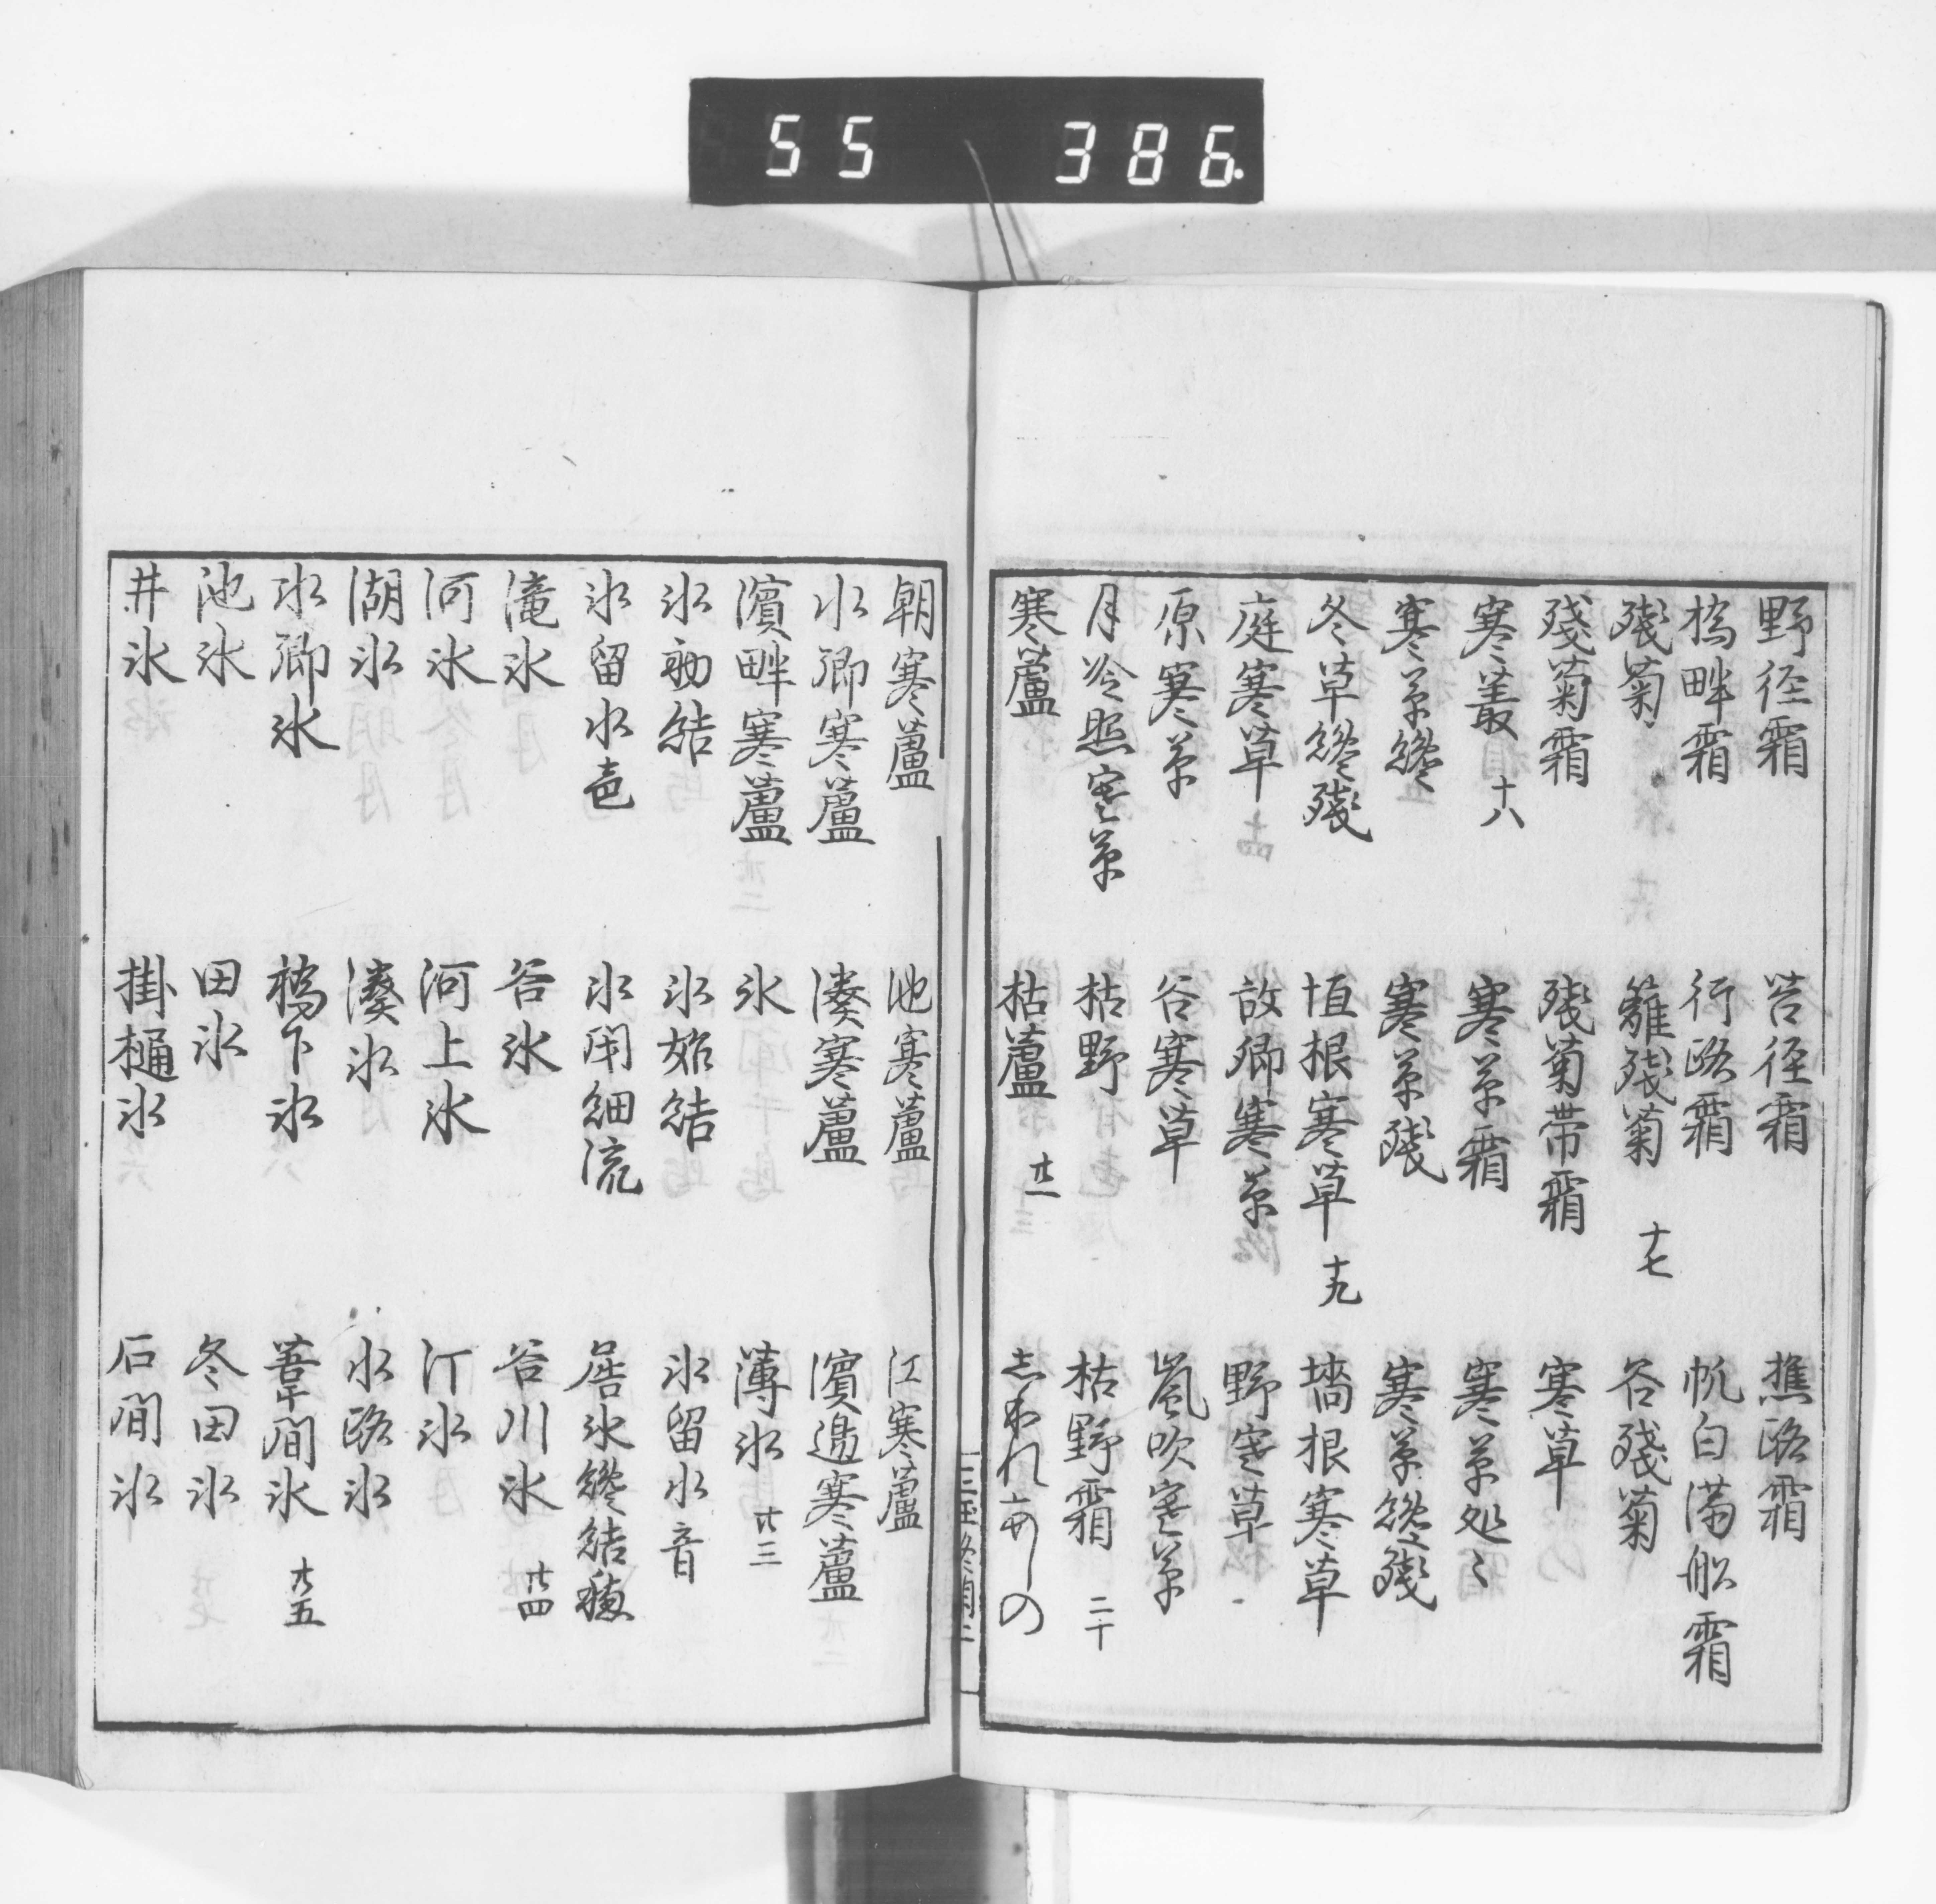 55 386.
野径霜 苔径霜 樵路霜
橋畔霜 行路霜 帆白満船霜
残菊 籬残菊 十七 谷残菊
残菊霜 残菊帯霜 寒草
寒叢 十八 寒草霜 寒草処々
寒草纔 寒草残 寒草纔残
冬草纔残 垣根寒草 十九 墻根寒草
庭寒草 故郷寒草 野寒草
原寒草 谷寒草 嵐吹寒草
月冷照寒草 枯野 枯野霜 二十
寒蘆 枯蘆 廿一 しほれあしの
朝寒蘆 池寒蘆 江寒蘆
水郷寒蘆 湊寒蘆 濱邉寒蘆
濱畔寒蘆 氷 薄氷 廿三
氷初結 氷始結 氷留水音
氷留水色 氷閉細流
滝氷 谷氷 谷川氷 廿四
河氷 河上氷 汀氷
湖氷 湊氷 水路氷
水郷氷 橋下氷 葦間氷 廿五
池氷 田氷 冬田氷
井氷 掛樋氷 石間氷